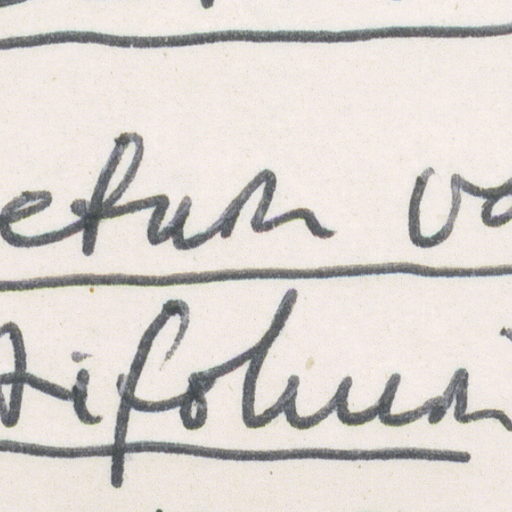 etum va
tifolium